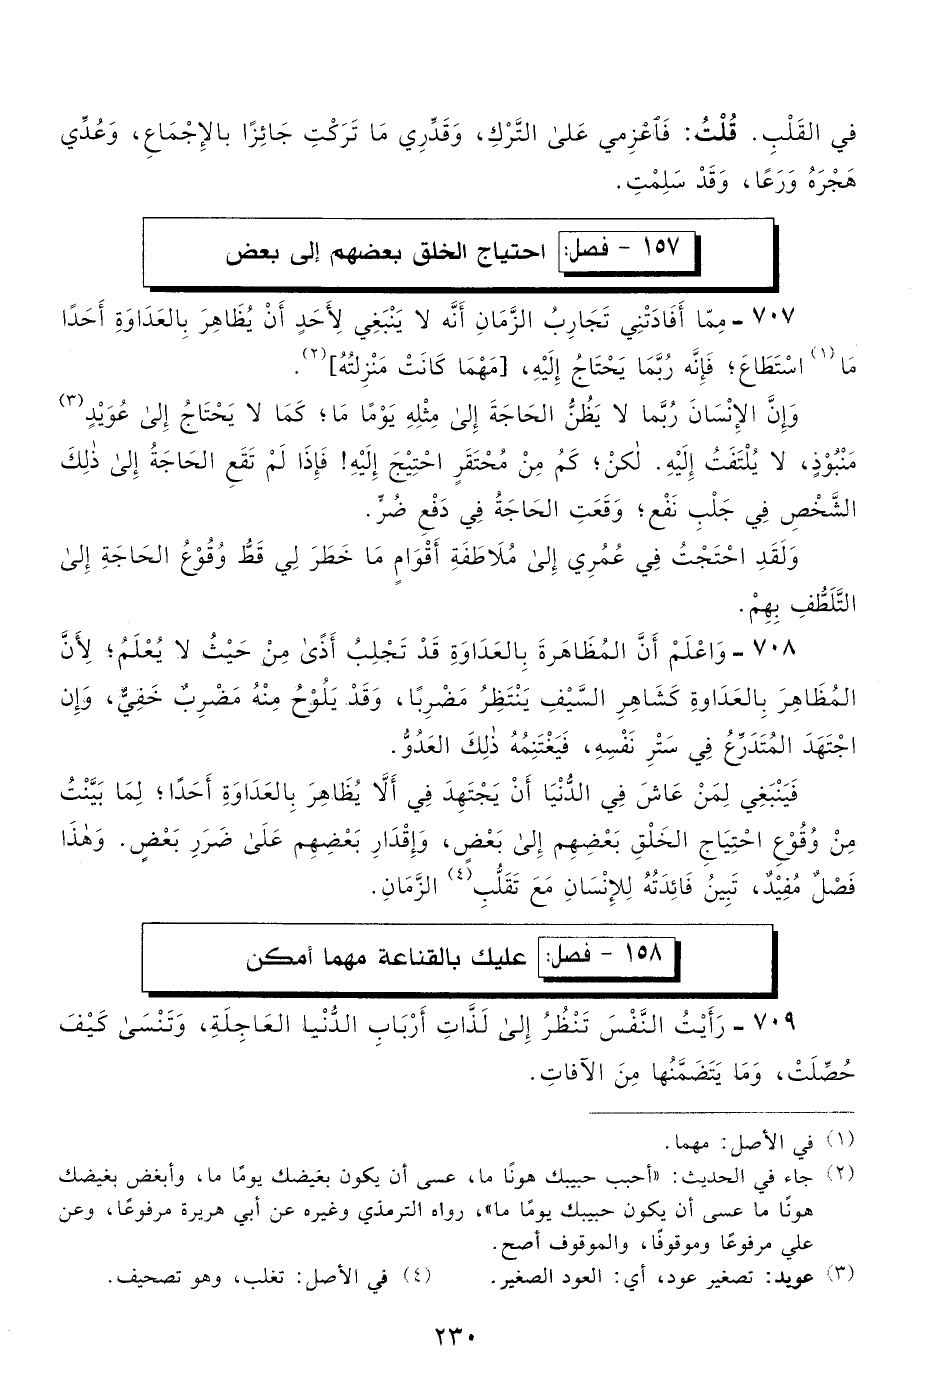 في القَلْبِ. قُلْتُ: فَاعْزِمي عَلىٰ التَّرْكِ، وَقَدِّرِي مَا تَرَكْتِ جَائِزًا بالإِجْمَاعِ، وَعُدِّي
هَجْرَهُ وَرَعًا، وَقَدْ سَلِمْتِ.
١٥٧ - فصل: احتياج الخلق بعضهم إلى بعض
٧٠٧ - مِمّا أَفَادَتْنِي تَجَارِبُ الزَّمَانِ أَنَّه لا يَنْبَغِي لِأَحَدٍ أَنْ يُظَاهِرَ بِالعَدَاوَةِ أَحَدًا
مَا(١) اسْتَطَاعَ؛ فَإِنَّه رُبَّمَا يَحْتَاجُ إِلَيْهِ، [مَهْمَا كَانَتْ مَنْزِلتُهُ](٢).
وَإِنَّ الإِنْسَانَ رُبَّما لا يَظُنُّ الحَاجَةَ إِلىٰ مِثْلِهِ يَوْمًا مَا؛ كَمَا لا يَحْتَاجُ إِلىٰ عُوَيْدٍ(٣)
مَنْبُوْذٍ، لا يُلْتَفَتُ إِلَيْهِ. لٰكنْ؛ كَمْ مِنْ مُحْتَقَرٍ احْتِيْجَ إِلَيْهِ! فَإِذَا لَمْ تَقَعِ الحَاجَةُ إِلىٰ ذٰلِكَ
الشَّخْصِ فِي جَلْبِ نَفْعٍ؛ وَقَعَتِ الحَاجَةُ فِي دَفْعِ ضُرٍّ.
وَلَقَدِ احْتَجْتُ فِي عُمُرِي إِلىٰ مُلَاطَفَةِ أَقْوَامٍ مَا خَطَرَ لِي قَطُّ وُقُوْعُ الحَاجَةِ إِلىٰ
التَّلَطُّفِ بِهِمْ.
٧٠٨ - وَاعْلَمْ أَنَّ المُظَاهَرةَ بِالعَدَاوَةِ قَدْ تَجْلِبُ أَذًىٰ مِنْ حَيْثُ لا يُعْلَمُ؛ لِأَنَّ
المُظَاهِرَ بِالعَدَاوةِ كَشَاهِرِ السَّيْفِ يَنْتَظِرُ مَضْرِبًا، وَقَدْ يَلُوْحُ مِنْهُ مَضْرِبٌ خَفِيٌّ، وَإِن
اجْتَهَدَ المُتَدَرِّعُ فِي سَتْرِ نَفْسِهِ، فَيَغْتَنِمُهُ ذٰلِكَ العَدُوُّ.
فَيَنْبَغِي لِمَنْ عَاشَ فِي الدُّنْيَا أَنْ يَجْتَهِدَ فِي أَلَّا يُظَاهِرَ بِالعَدَاوَةِ أَحَدًا؛ لِمَا بَيَّنْتُ
مِنْ وُقُوْعِ احْتِيَاجِ الخَلْقِ بَعْضِهِم إِلىٰ بَعْضٍ، وَإِقْدَارِ بَعْضِهِم عَلَىٰ ضَرَرِ بَعْضٍ. وَهٰذَا
فَصْلٌ مُفِيْدٌ، تَبِينُ فَائِدَتُهُ لِلإِنْسَانِ مَعَ تَقَلُّبِ(٤) الزَّمَانِ.
١٥٨ - فصل: عليك بالقناعة مهما أمكن
٧٠٩ - رَأَيْتُ النَّفْسَ تَنْظُرُ إِلىٰ لَذَّاتِ أَرْبَابِ الدُّنْيا العَاجِلَةِ، وَتَنْسَىٰ كَيْفَ
حُصِّلَتْ، وَمَا يَتَضَمَّنُها مِنَ الآفَاتِ.
(١) في الأصل: مهما.
(٢) جاء في الحديث: «أحبب حبيبك هونًا ما، عسى أن يكون بغيضك يومًا ما، وأبغض بغيضك
هونًا ما عسى أن يكون حبيبك يومًا ما»، رواه الترمذي وغيره عن أبي هريرة مرفوعًا، وعن
علي مرفوعًا وموقوفًا، والموقوف أصح.
(٣) عويد: تصغير عود، أي: العود الصغير. (٤) في الأصل: تغلب، وهو تصحيف.
٢٣٠